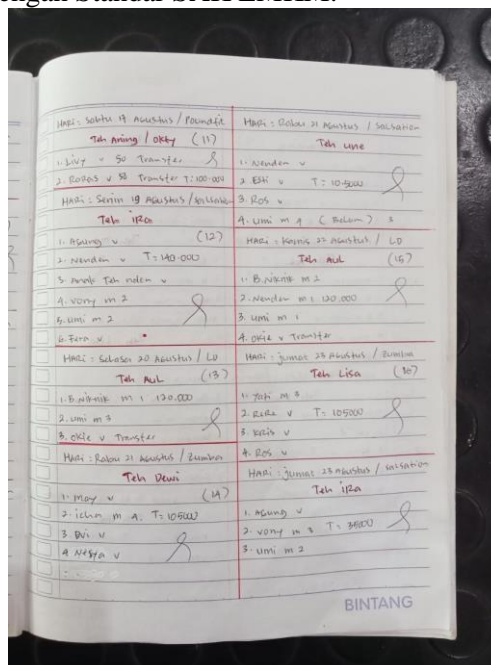 Hari : Sabtu 17 Agustus / Poundfit
Teh Aning / Okty (11)
1. Livy v 50 Transfer
2. Raras v 50 Transfer T: 100.000
Hari : Senin 19 Agustus / Salsation
Teh iRa
1. Agung v (12)
2. Nendan v T= 140.000
3. Anak Teh nden v
4. vony m 2
5. umi m 2
6. Fera v
Hari : Selasa 20 Agustus / LD
Teh AuL (13)
1. B. Niknik m 1 120.000
2. umi m 3
3. okie v Transfer
Hari : Rabu 21 Agustus / Zumba
Teh Dewi
1. may v (14)
2. icha m 4. T= 105000
3. Evi v
4 Nesya v
Hari : Rabu 21 Agustus / Salsation
Teh une
1. Nenden v
2. Elti v T= 105000
3. Ros v
4. Umi m 4 (Belum)
Hari : Kamis 22 Agustus / LD
Teh AuL (15)
1. B. Niknik m 2
2. Nendan m 1 120.000
3. umi m 1
4. okie v Transfer
Hari : jumat 23 Agustus / Zumba
Teh Lisa (16)
1. yati m 3
2. ReRe v T= 105000
3. KRis v
4. Ros v
Hari : jumat 23 Agustus / salsation
Teh iRa
1. Agung v
2. vony m 3 T= 35000
3. umi m 2
BINTANG